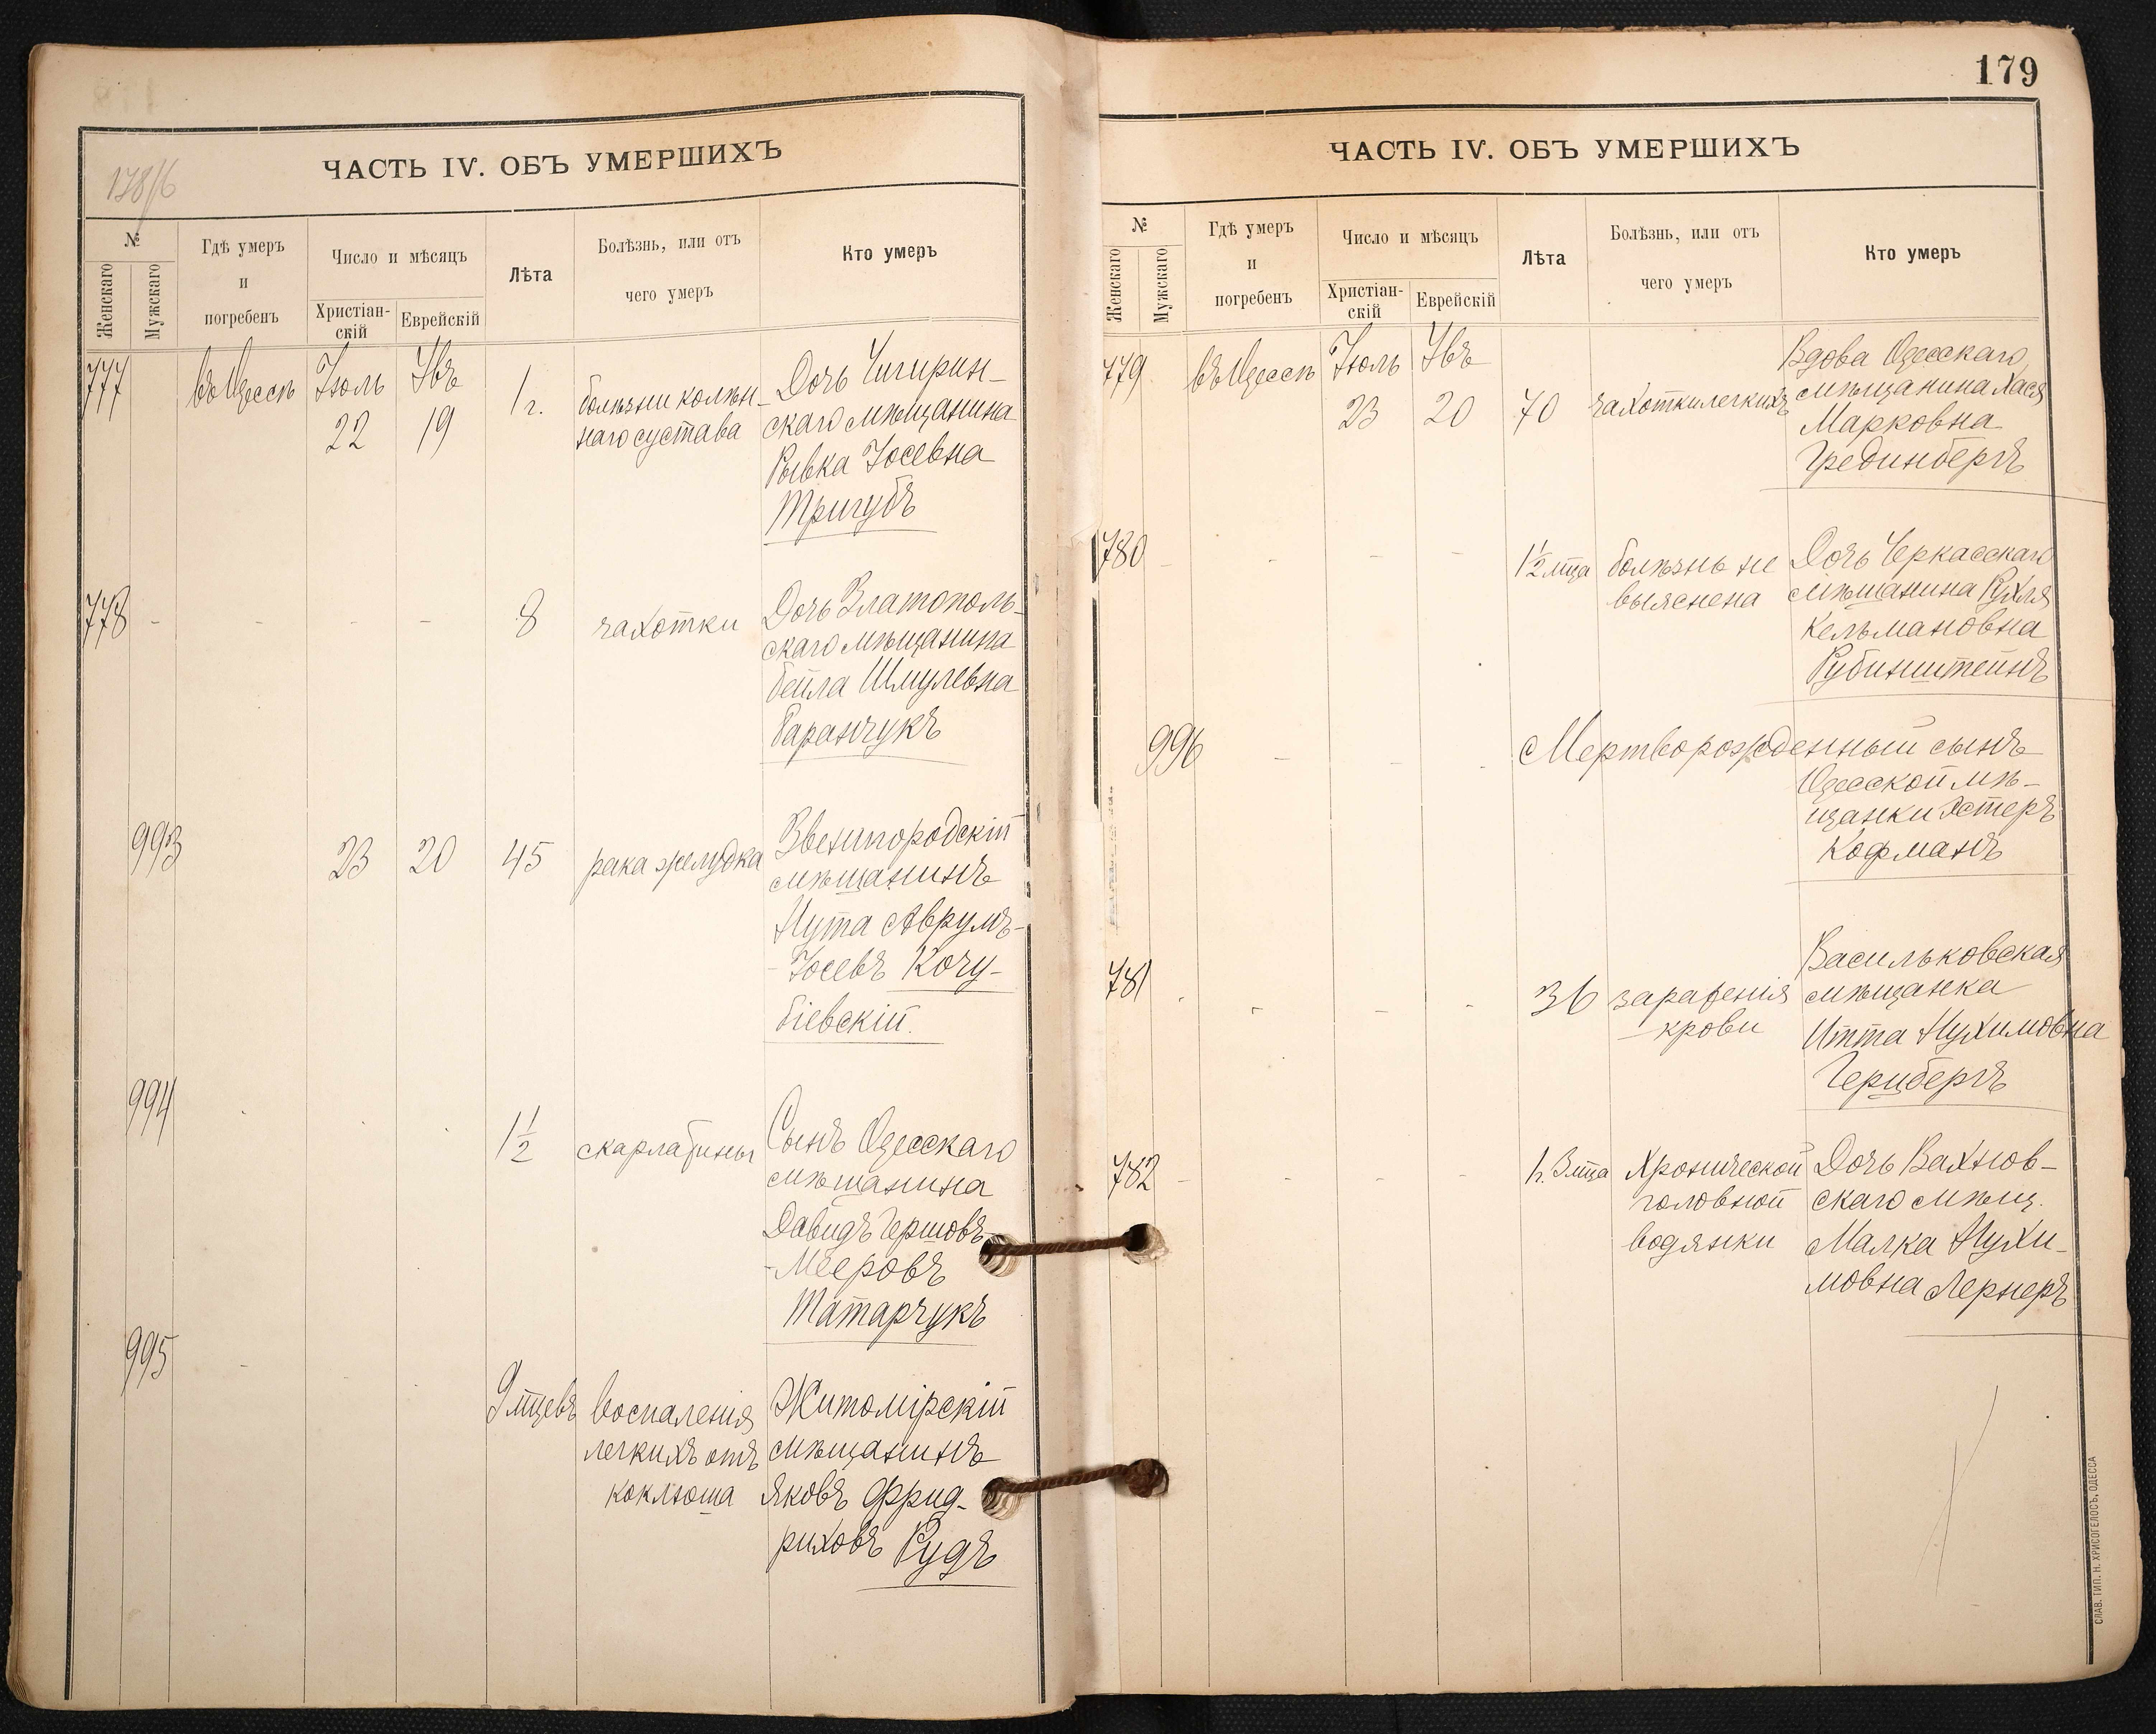 178/б
ЧАСТЬ IV. ОБЪ УМЕРШИХЪ
№
Женскаго
Мужскаго
Гдѣ умеръ
и
погребенъ
Число и мѣсяцъ
Христіан-
скій
Еврейскій
Лѣта
Болѣзнь, или отъ
чего умеръ
Кто умеръ
777
въ Одессѣ
Іюль
22
Увъ
19
1 г.
болѣзни колѣн-
наго сустава
Дочь Чигирин-
скаго мѣщанина
Рывка Іосевна
Тригубъ
778
8
чахотки
Дочь Златополь-
скаго мѣщанина
Бейла Шмулевна
Баранчукъ
993
23
20
45
рака желудка
Звенигородскій
мѣщанинъ
Нута Аврумъ-
-Іосевъ Кочу-
біевскій.
994
1 1/2
скарлатины
Сынъ Одесскаго
мѣщанина
Давидъ Гершовъ-
-Мееровъ
Татарчукъ
995
9 мцевъ
воспаленія
легкихъ отъ
коклюша
Житомірскій
мѣщанинъ
Яковъ Фрид-
риховъ Рудъ
179
ЧАСТЬ IV. ОБЪ УМЕРШИХЪ
№
Женскаго
Мужскаго
Гдѣ умеръ
и
погребенъ
Число и мѣсяцъ
Христіан-
скій
Еврейскій
Лѣта
Болѣзнь, или отъ
чего умеръ
Кто умеръ
779
въ Одессѣ
Іюль
23
Увъ
20
70
чахотки легкихъ
Вдова Одесскаго
мѣщанина Хася
Марковна
Грединбергъ
780
1 1/2 мца
болѣзнь не
выяснена
Дочь Черкасскаго
мѣщанина Рухля
Кельмановна
Рубинштейнъ
996
Мертворожденный сынъ
Одесской мѣ-
щанки Эстеръ
Кофманъ
781
36
зараженія
крови
Васильковская
мѣщанка
Итта Нухимовна
Герцбергъ
782
1 г. 3 мца
Хронической
головной
водянки
Дочь Вахнов-
скаго мѣщ.
Малка Нухи-
мовна Лернеръ
СЛАВ. ТИП. Н. ХРИСОГЕЛОСЪ, ОДЕССА